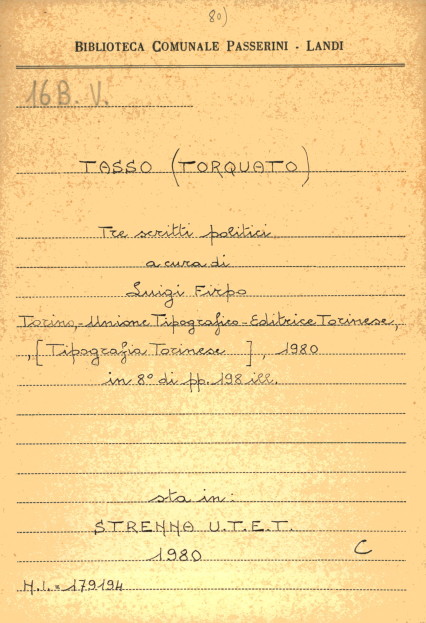 80)
BIBLIOTECA COMUNALE PASSERINI - LANDI
16 B. V.
TASSO (TORQUATO)
Tre scritti politici
a cura di
Luigi Firpo
Torino,-Unione Tipografico-Editrice Torinese,
, [Tipografia Torinese ] , 1980
in 8° di pp. 198 ill.
sta in:
STRENNA U.T.E.T.
1980
C
N.I. = 179194